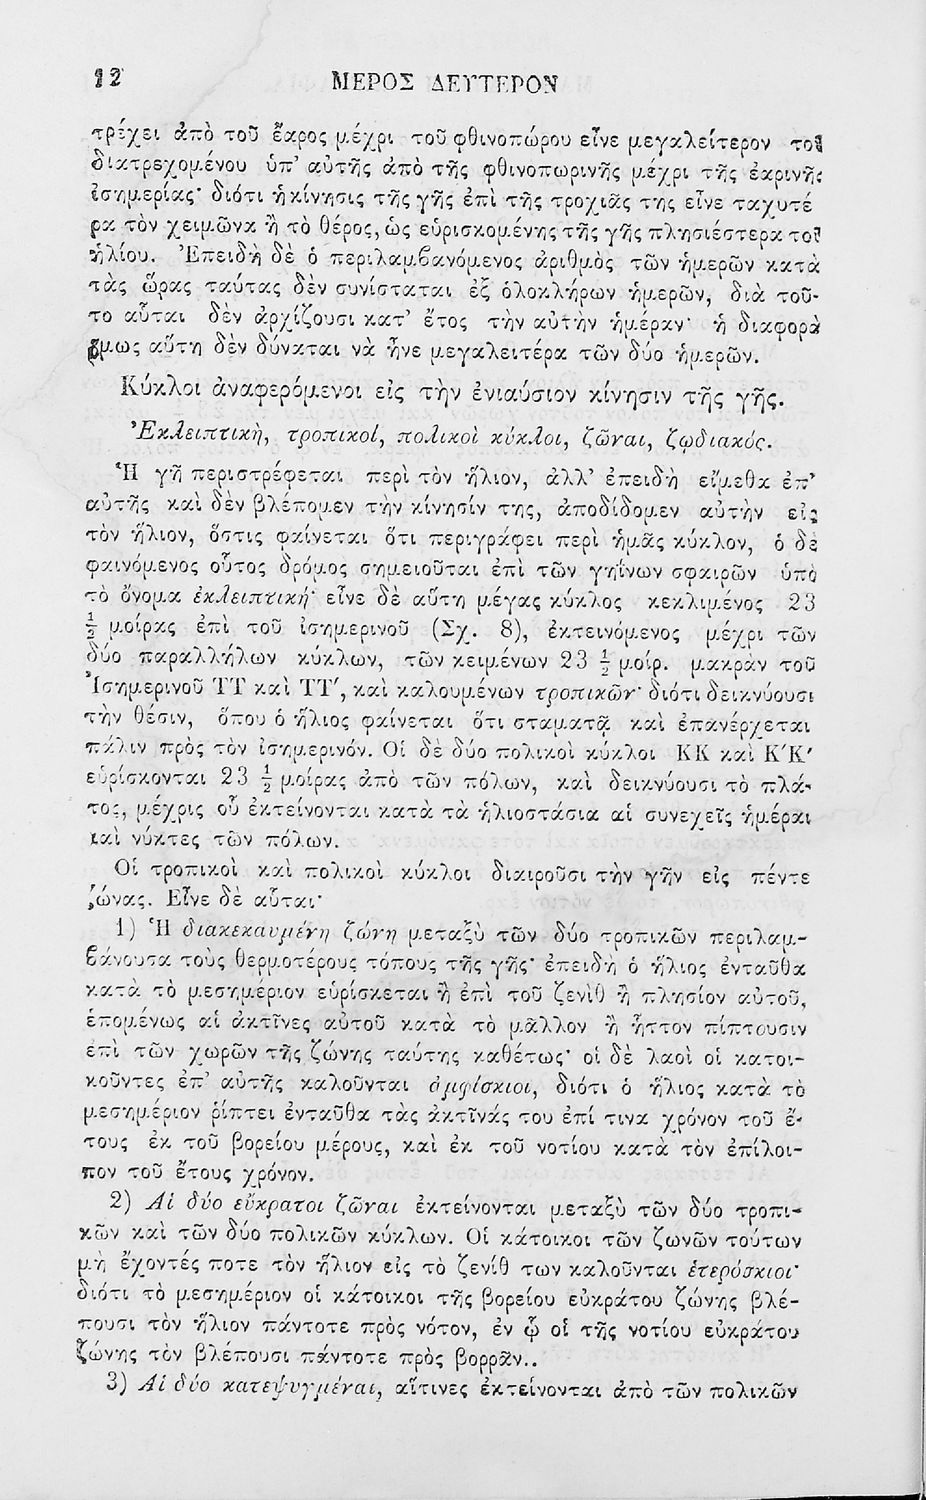 12 ΜΕΡΟΣ ΔΕΥΤΕΡΟΝ
τρέχει ἀπὸ τοῦ ἔαρος μέχρι τοῦ φθινοπώρου εἶνε μεγαλείτερον τοῦ
διατρεχομένου ὑπ’ αὐτῆς ἀπὸ τῆς φθινοπωρινῆς μέχρι τῆς ἐαρινῆς
ἰσημερίας· διότι ἡ κίνησις τῆς γῆς ἐπὶ τῆς τροχιᾶς της εἶνε ταχυτέ
ρα τὸν χειμῶνα ἢ τὸ θέρος, ὡς εὑρισκομένης τῆς γῆς πλησιέστερα τοῦ
ἡλίου. Ἐπειδὴ δὲ ὁ περιλαμβανόμενος ἀριθμὸς τῶν ἡμερῶν κατὰ
τὰς ὥρας ταύτας δὲν συνίσταται ἐξ ὁλοκλήρων ἡμερῶν, διὰ τοῦ-
το αὗται δὲν ἀρχίζουσι κατ’ ἔτος τὴν αὐτὴν ἡμέραν· ἡ διαφορὰ
ὅμως αὕτη δὲν δύναται νὰ ἦνε μεγαλειτέρα τῶν δύο ἡμερῶν.
Κύκλοι ἀναφερόμενοι εἰς τὴν ἐνιαύσιον κίνησιν τῆς γῆς.
Ἐκλειπτικὴ, τροπικοί, πολικοὶ κύκλοι, ζῶναι, ζῳδιακός.
Ἡ γῆ περιστρέφεται περὶ τὸν ἥλιον, ἀλλ’ ἐπειδὴ εἴμεθα ἐπ’
αὐτῆς καὶ δὲν βλέπομεν τὴν κίνησίν της, ἀποδίδομεν αὐτὴν εἰς
τὸν ἥλιον, ὅστις φαίνεται ὅτι περιγράφει περὶ ἡμᾶς κύκλον, ὁ δὲ
φαινόμενος οὗτος δρόμος σημειοῦται ἐπὶ τῶν γηΐνων σφαιρῶν ὑπὸ
τὸ ὄνομα ἐκλειπτική· εἶνε δὲ αὕτη μέγας κύκλος κεκλιμένος 23
½ μοίρας ἐπὶ τοῦ ἰσημερινοῦ (Σχ. 8), ἐκτεινόμενος μέχρι τῶν
δύο παραλλήλων κύκλων, τῶν κειμένων 23 ½ μοίρ. μακρὰν τοῦ
Ἰσημερινοῦ ΤΤ καὶ ΤΤ′, καὶ καλουμένων τροπικῶν· διότι δεικνύουσι
τὴν θέσιν, ὅπου ὁ ἥλιος φαίνεται ὅτι σταματᾷ καὶ ἐπανέρχεται
πάλιν πρὸς τὸν ἰσημερινόν. Οἱ δὲ δύο πολικοὶ κύκλοι ΚΚ καὶ Κ′Κ′
εὑρίσκονται 23 ½ μοίρας ἀπὸ τῶν πόλων, καὶ δεικνύουσι τὸ πλά-
τος, μέχρις οὗ ἐκτείνονται κατὰ τὰ ἡλιοστάσια αἱ συνεχεῖς ἡμέραι
καὶ νύκτες τῶν πόλων.
Οἱ τροπικοὶ καὶ πολικοὶ κύκλοι διαιροῦσι τὴν γῆν εἰς πέντε
ζώνας. Εἶνε δὲ αὗται·
1) Ἡ διακεκαυμένη ζώνη μεταξὺ τῶν δύο τροπικῶν περιλαμ-
βάνουσα τοὺς θερμοτέρους τόπους τῆς γῆς· ἐπειδὴ ὁ ἥλιος ἐνταῦθα
κατὰ τὸ μεσημέριον εὑρίσκεται ἢ ἐπὶ τοῦ ζενὶθ ἢ πλησίον αὐτοῦ,
ἑπομένως αἱ ἀκτῖνες αὐτοῦ κατὰ τὸ μᾶλλον ἢ ἧττον πίπτουσιν
ἐπὶ τῶν χωρῶν τῆς ζώνης ταύτης καθέτως· οἱ δὲ λαοὶ οἱ κατοι-
κοῦντες ἐπ’ αὐτῆς καλοῦνται ἀμφίσκιοι, διότι ὁ ἥλιος κατὰ τὸ
μεσημέριον ῥίπτει ἐνταῦθα τὰς ἀκτῖνάς του ἐπί τινα χρόνον τοῦ ἔ-
τους ἐκ τοῦ βορείου μέρους, καὶ ἐκ τοῦ νοτίου κατὰ τὸν ἐπίλοι-
πον τοῦ ἔτους χρόνον.
2) Αἱ δύο εὔκρατοι ζῶναι ἐκτείνονται μεταξὺ τῶν δύο τροπι-
κῶν καὶ τῶν δύο πολικῶν κύκλων. Οἱ κάτοικοι τῶν ζωνῶν τούτων
μὴ ἔχοντές ποτε τὸν ἥλιον εἰς τὸ ζενίθ των καλοῦνται ἑτερόσκιοι·
διότι τὸ μεσημέριον οἱ κάτοικοι τῆς βορείου εὐκράτου ζώνης βλέ-
πουσι τὸν ἥλιον πάντοτε πρὸς νότον, ἐν ᾧ οἱ τῆς νοτίου εὐκράτου
ζώνης τὸν βλέπουσι πάντοτε πρὸς βορρᾶν..
3) Αἱ δύο κατεψυγμέναι, αἵτινες ἐκτείνονται ἀπὸ τῶν πολικῶν